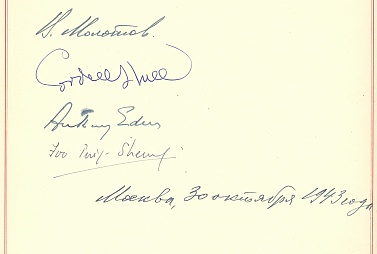 В. Молотов.
Cordell Hull
Anthony Eden
Foo Ping-Sheung
Москва, 30 октября 1943 года